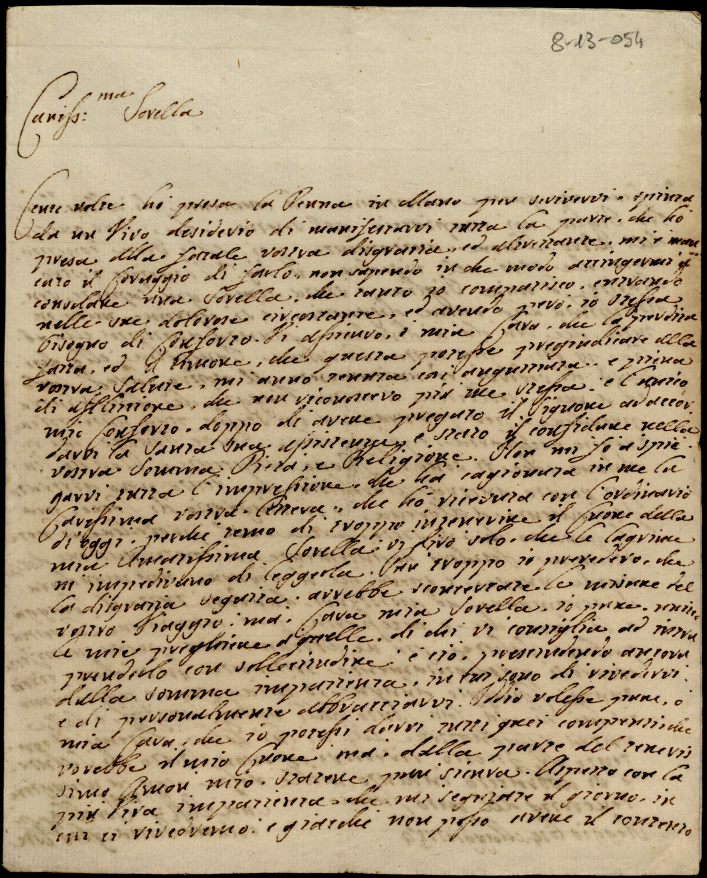 8-13-054
Cariss:ma Sorella
Cente volte hò presa la Penna in Mano per scrivervi, spinta
da un Vivo desiderio di manifestarvi tutta la parte, che hò
presa alla fatale vostra disgrazia, ed altretante, mi è man
cato il Coraggio di farlo, non sapendo in che modo accingermi a
consolare una Sorella, che tanto io compatisco, entrando
nelle sue dolorose circostanze, ed avendo però, io stessa
bisogno di Conforto. Vi assicuro, o mia Cara, che la perdita
fatta, ed il timore, che questa potesse pregiudicare alla
vostra Salute, mi anno tenuta così angustiata, e piena
di afflizione, che non riconoscevo più me stessa, e l'unico
mio Conforto, doppo di avere pregato il Signore ad accor
darvi la Santa sua assistenza, è stato il confidare nella
vostra Somma Pietà, e Religione. Non mi fo a spie
garvi tutta l'impressione, che hà cagionata in me la
Carissima vostra Lettera, che hò ricevuta con l'Ordinario
di oggi, perche temo di troppo intenerire il Cuore della
mia Amatissima Sorella, vi dirò solo, che le Lagrime
m'impedivano di leggerla. Pur troppo io prevedevo, che
la disgrazia seguita, avrebbe sconcertate le misure del
vostro Viaggio: ma, Cara mia Sorella, io pure, unisco
le mie preghiere a quelle, di chi vi consiglia ad intra
prenderlo con sollecitudine: e ciò, prescindendo ancora
dalla somma impazienza, in cui sono di rivedervi,
e di personalmente abbracciarvi. Iddio volesse pure, o
mia Cara, che io potessi darvi tutti quei compensi, che
vorebbe il mio Cuore ma, dalla parte del teneris
simo Amor mio, statene pur sicura. Aspetto con la
più Viva impazienza, che mi segniate il giorno, in
cui ci rivedremo: e giacche non posso avere il contento